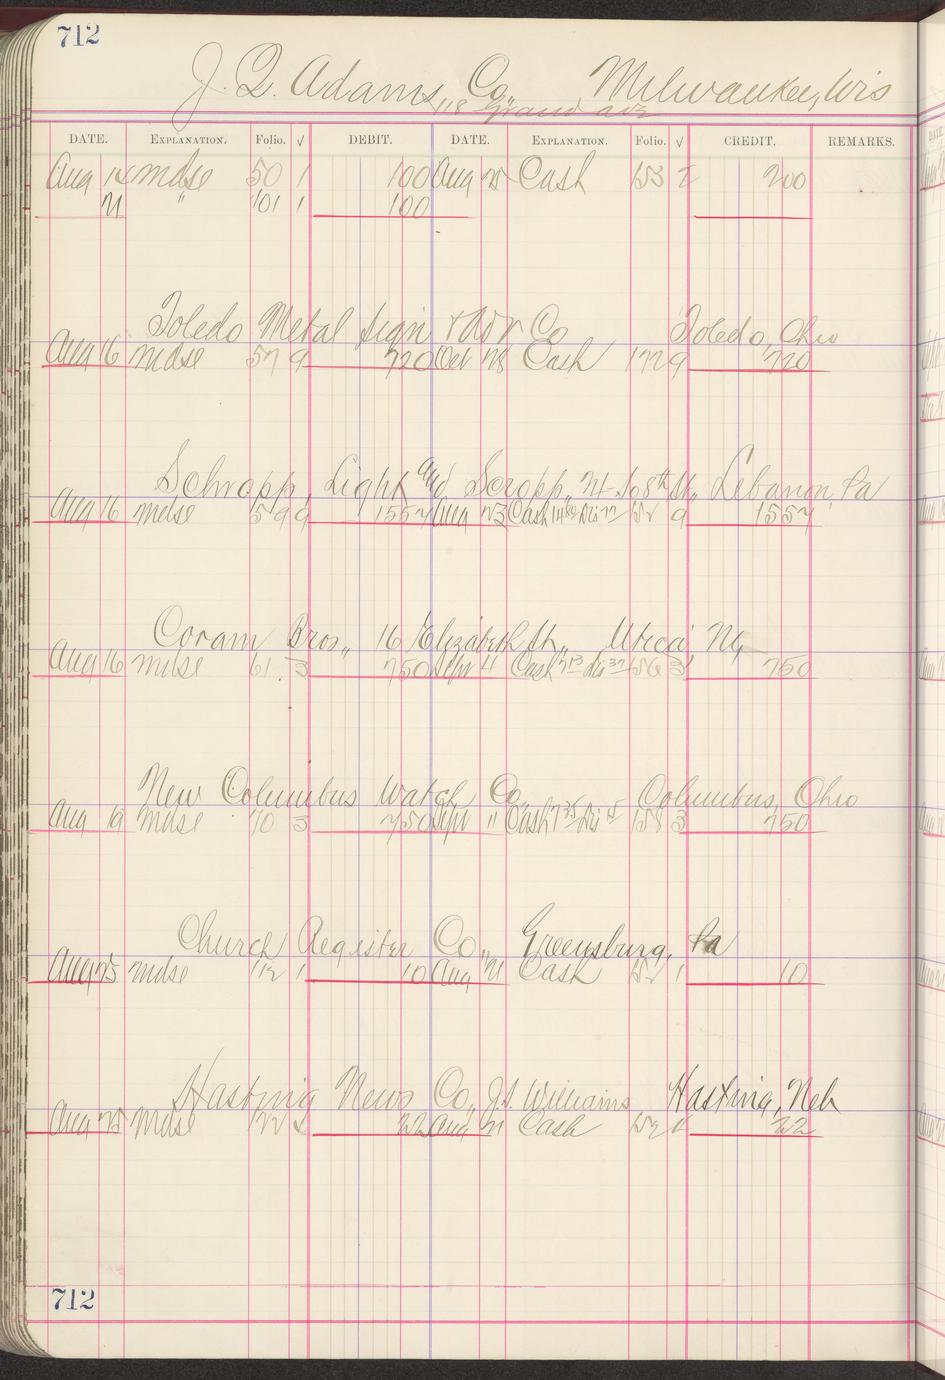 712
J. Q. Adams Co., Milwaukee, Wis
118 Grand ave
DATE. EXPLANATION. Folio. √ DEBIT. DATE. EXPLANATION. Folio. √ CREDIT. REMARKS.
Aug 14 mdse 50 1 100 Aug 25 Cash 153 2 200
21 " 101 1 100
Toledo Metal Sign & Adv Co Toledo, Ohio
Aug 16 mdse 57 9 720 Oct 28 Cash 172 9 720
Schropp, Light and Scropp, So 8th St., Lebanon, Pa
Aug 16 mdse 59 9 1557 Aug 23 Cash Dis 152 9 1557
Coram Bros., 16 Elizabeth St., Utica, NY
Aug 16 mdse 61 3 750 Sept 11 Cash 713 Dis 37 156 3 750
New Columbus Watch Co., Columbus, Ohio
Aug 19 mdse 70 3 750 Sept 11 Cash 735 Dis 15 158 3 750
Church Register Co., Greensburg, Pa
Aug 25 mdse 112 1 10 Aug 21 Cash 152 1 10
Hasting News Co., J.S. Williams Hasting, Neb
Aug 25 Mdse 122 22 Aug 21 Cash 152 22
712